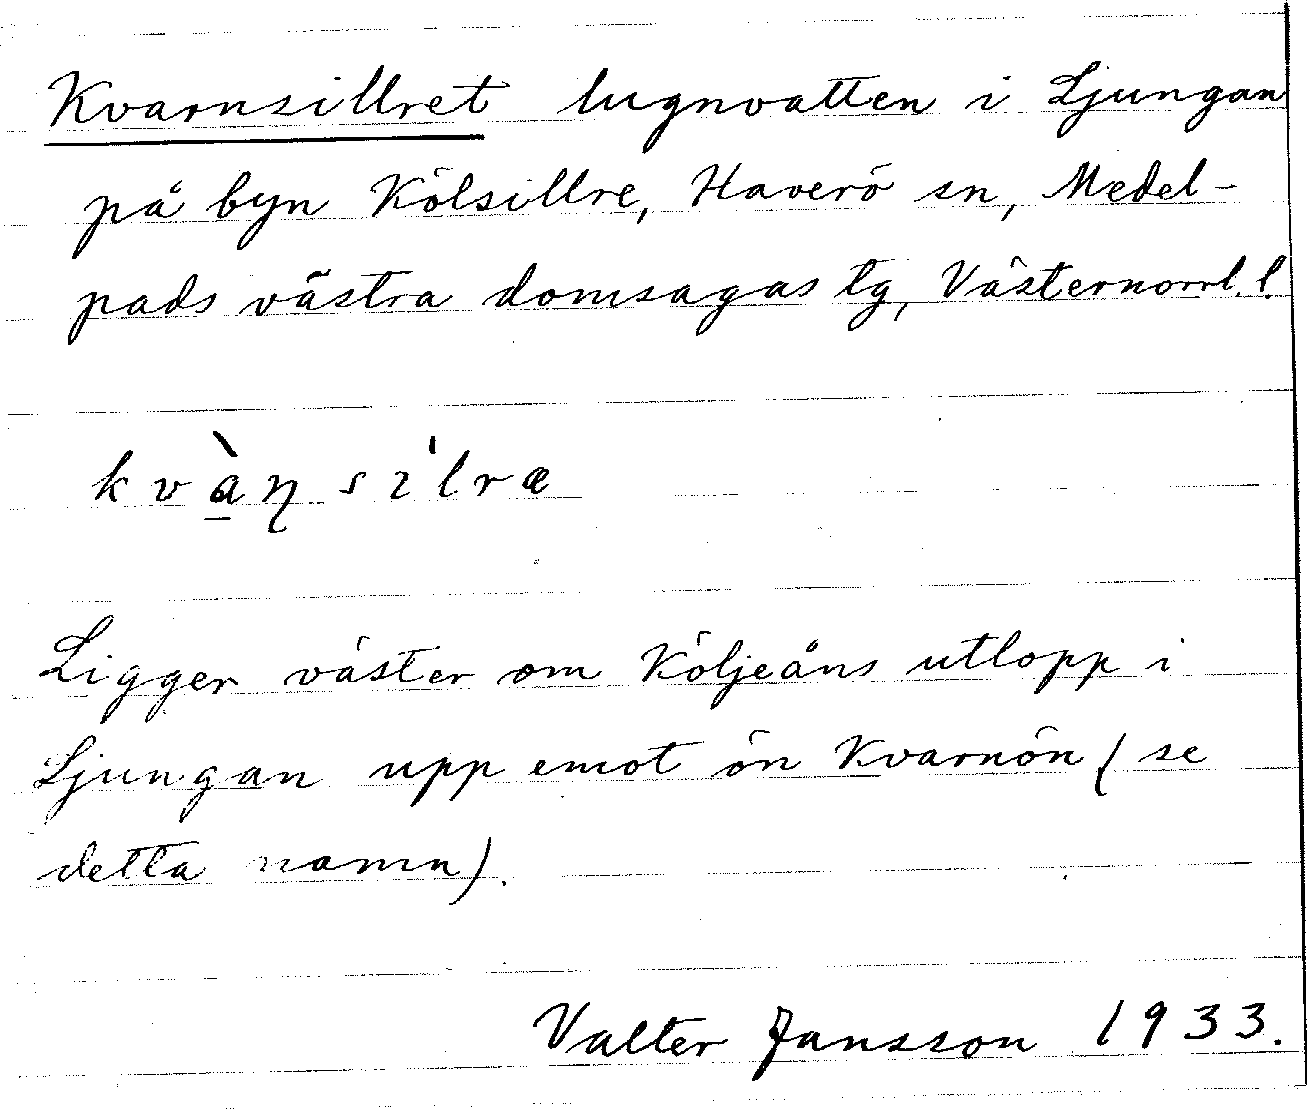 Kvarnsillret lugnvatten i Ljungan
på byn Kölsillre, Haverö sn, Medel-
pads västra domsagas tg, Västernorrl. l.
kvàn̨sɩ'lræ
Ligger väster om Köljeåns utlopp i
Ljungan upp emot ön Kvarnön (se
detta namn).
Valter Jansson 1933.